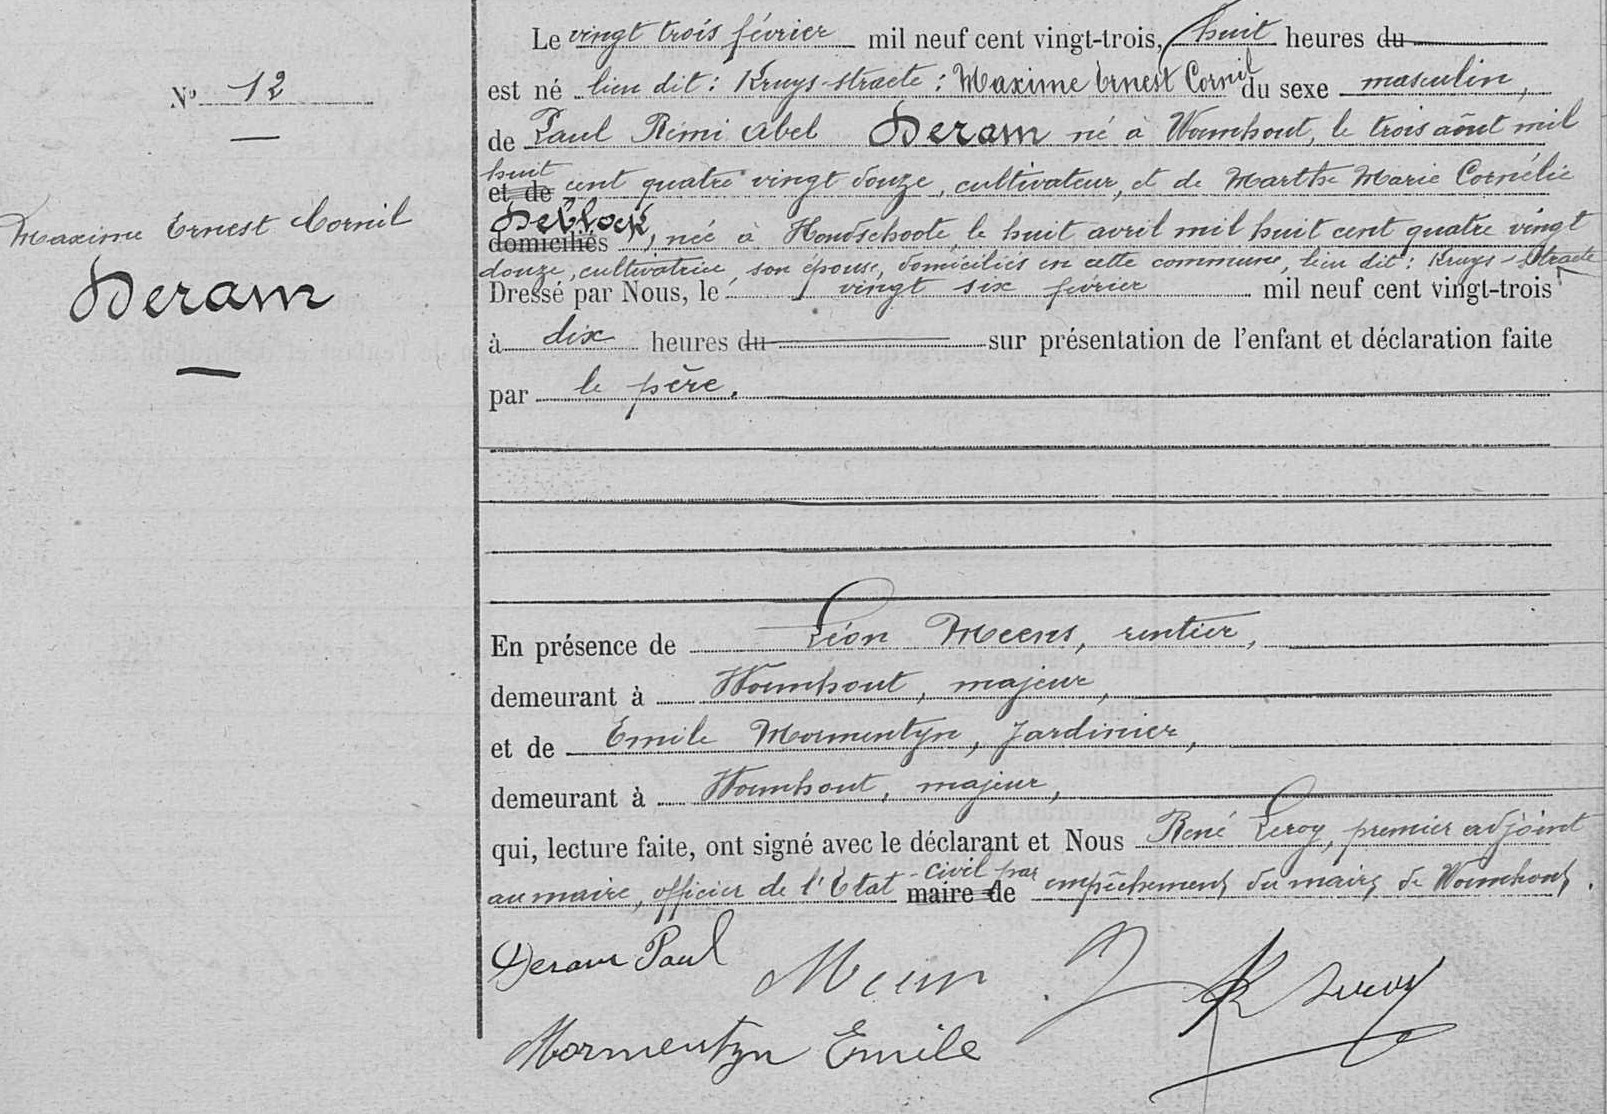 Nº 12
Maxime Ernest Cornil
Deram
Le vingt trois février mil neuf cent vingt-trois, huit heures du
est né lieu dit : Kruys-stracte : Maxime Ernest Cornil du sexe masculin,
de Paul Rémi Abel Deram né à Wormhout, le trois août mil
huit
et de cent quatre vingt douze, cultivateur, et de Marthe Marie Cornélie
Deblock
domiciliés , née à Hondschoote, le huit avril mil huit cent quatre vingt
douze, cultivatrice, son épouse, domiciliés en cette commune, lieu dit : Kruys-stracte
Dressé par Nous, le vingt six février mil neuf cent vingt-trois
à dix heures du sur présentation de l'enfant et déclaration faite
par le père.
En présence de Léon Meens, rentier,
demeurant à Wormhout, majeur,
et de Emile Mormentyn, Jardinier,
demeurant à Wormhout, majeur,
qui, lecture faite, ont signé avec le déclarant et Nous René Leroy, premier adjoint
au maire, officier de l'Etat -civil par maire de empêchement du maire de Wormhout.
Deram Paul
R Leroy
Mormentyn Emile